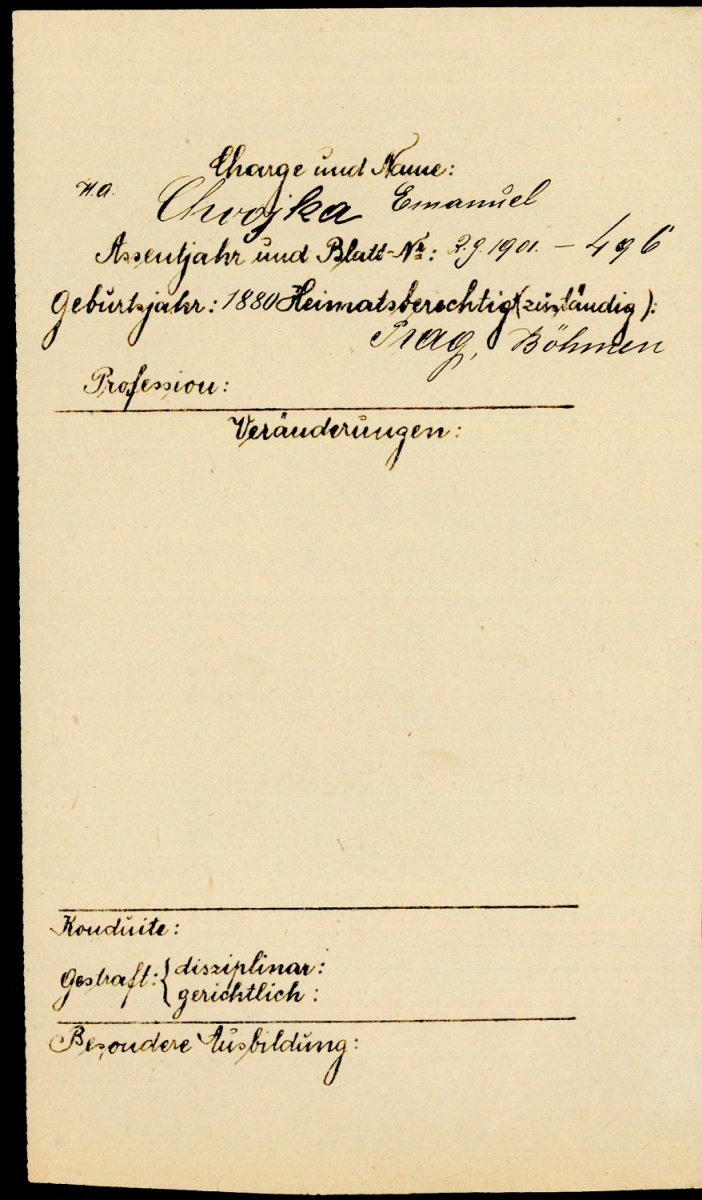 Charge und Name:
H.A. Chvojka Emanuel
Assentjahr und Blatt-Nr: 1901. – 496
Geburtsjahr: 1880 Heimatsberechtigt (zuständig):
Prag, Böhmen
Profession:
Veränderungen:
Konduite:
Gestraft: { disziplinar:
gerichtlich:
Besondere Ausbildung: